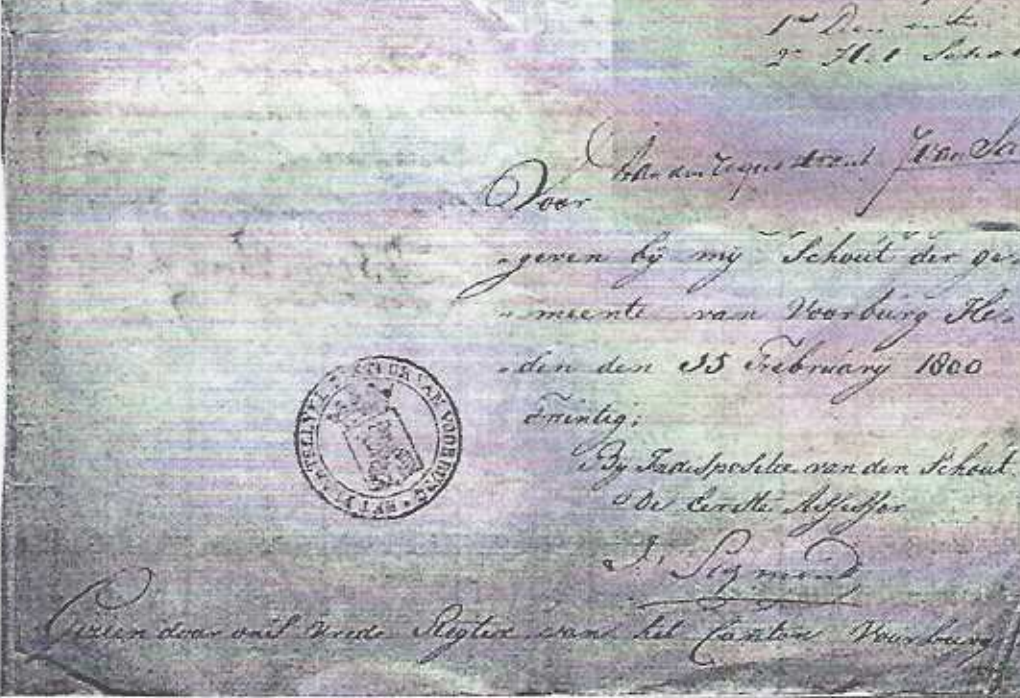 1e Den
2e Het
Voor van den requestrant J van
geven bij mij Schout der ge-
meente van Voorburg He-
den den 25 February 1800
Twintig;
By Indispositie van den Schout
De Eerste Assessor
J. Sigmend
PLAATSELYK BESTUUR VAN VOORBURG
Gezien door ons Vrede Regter van het Canton Voorburg